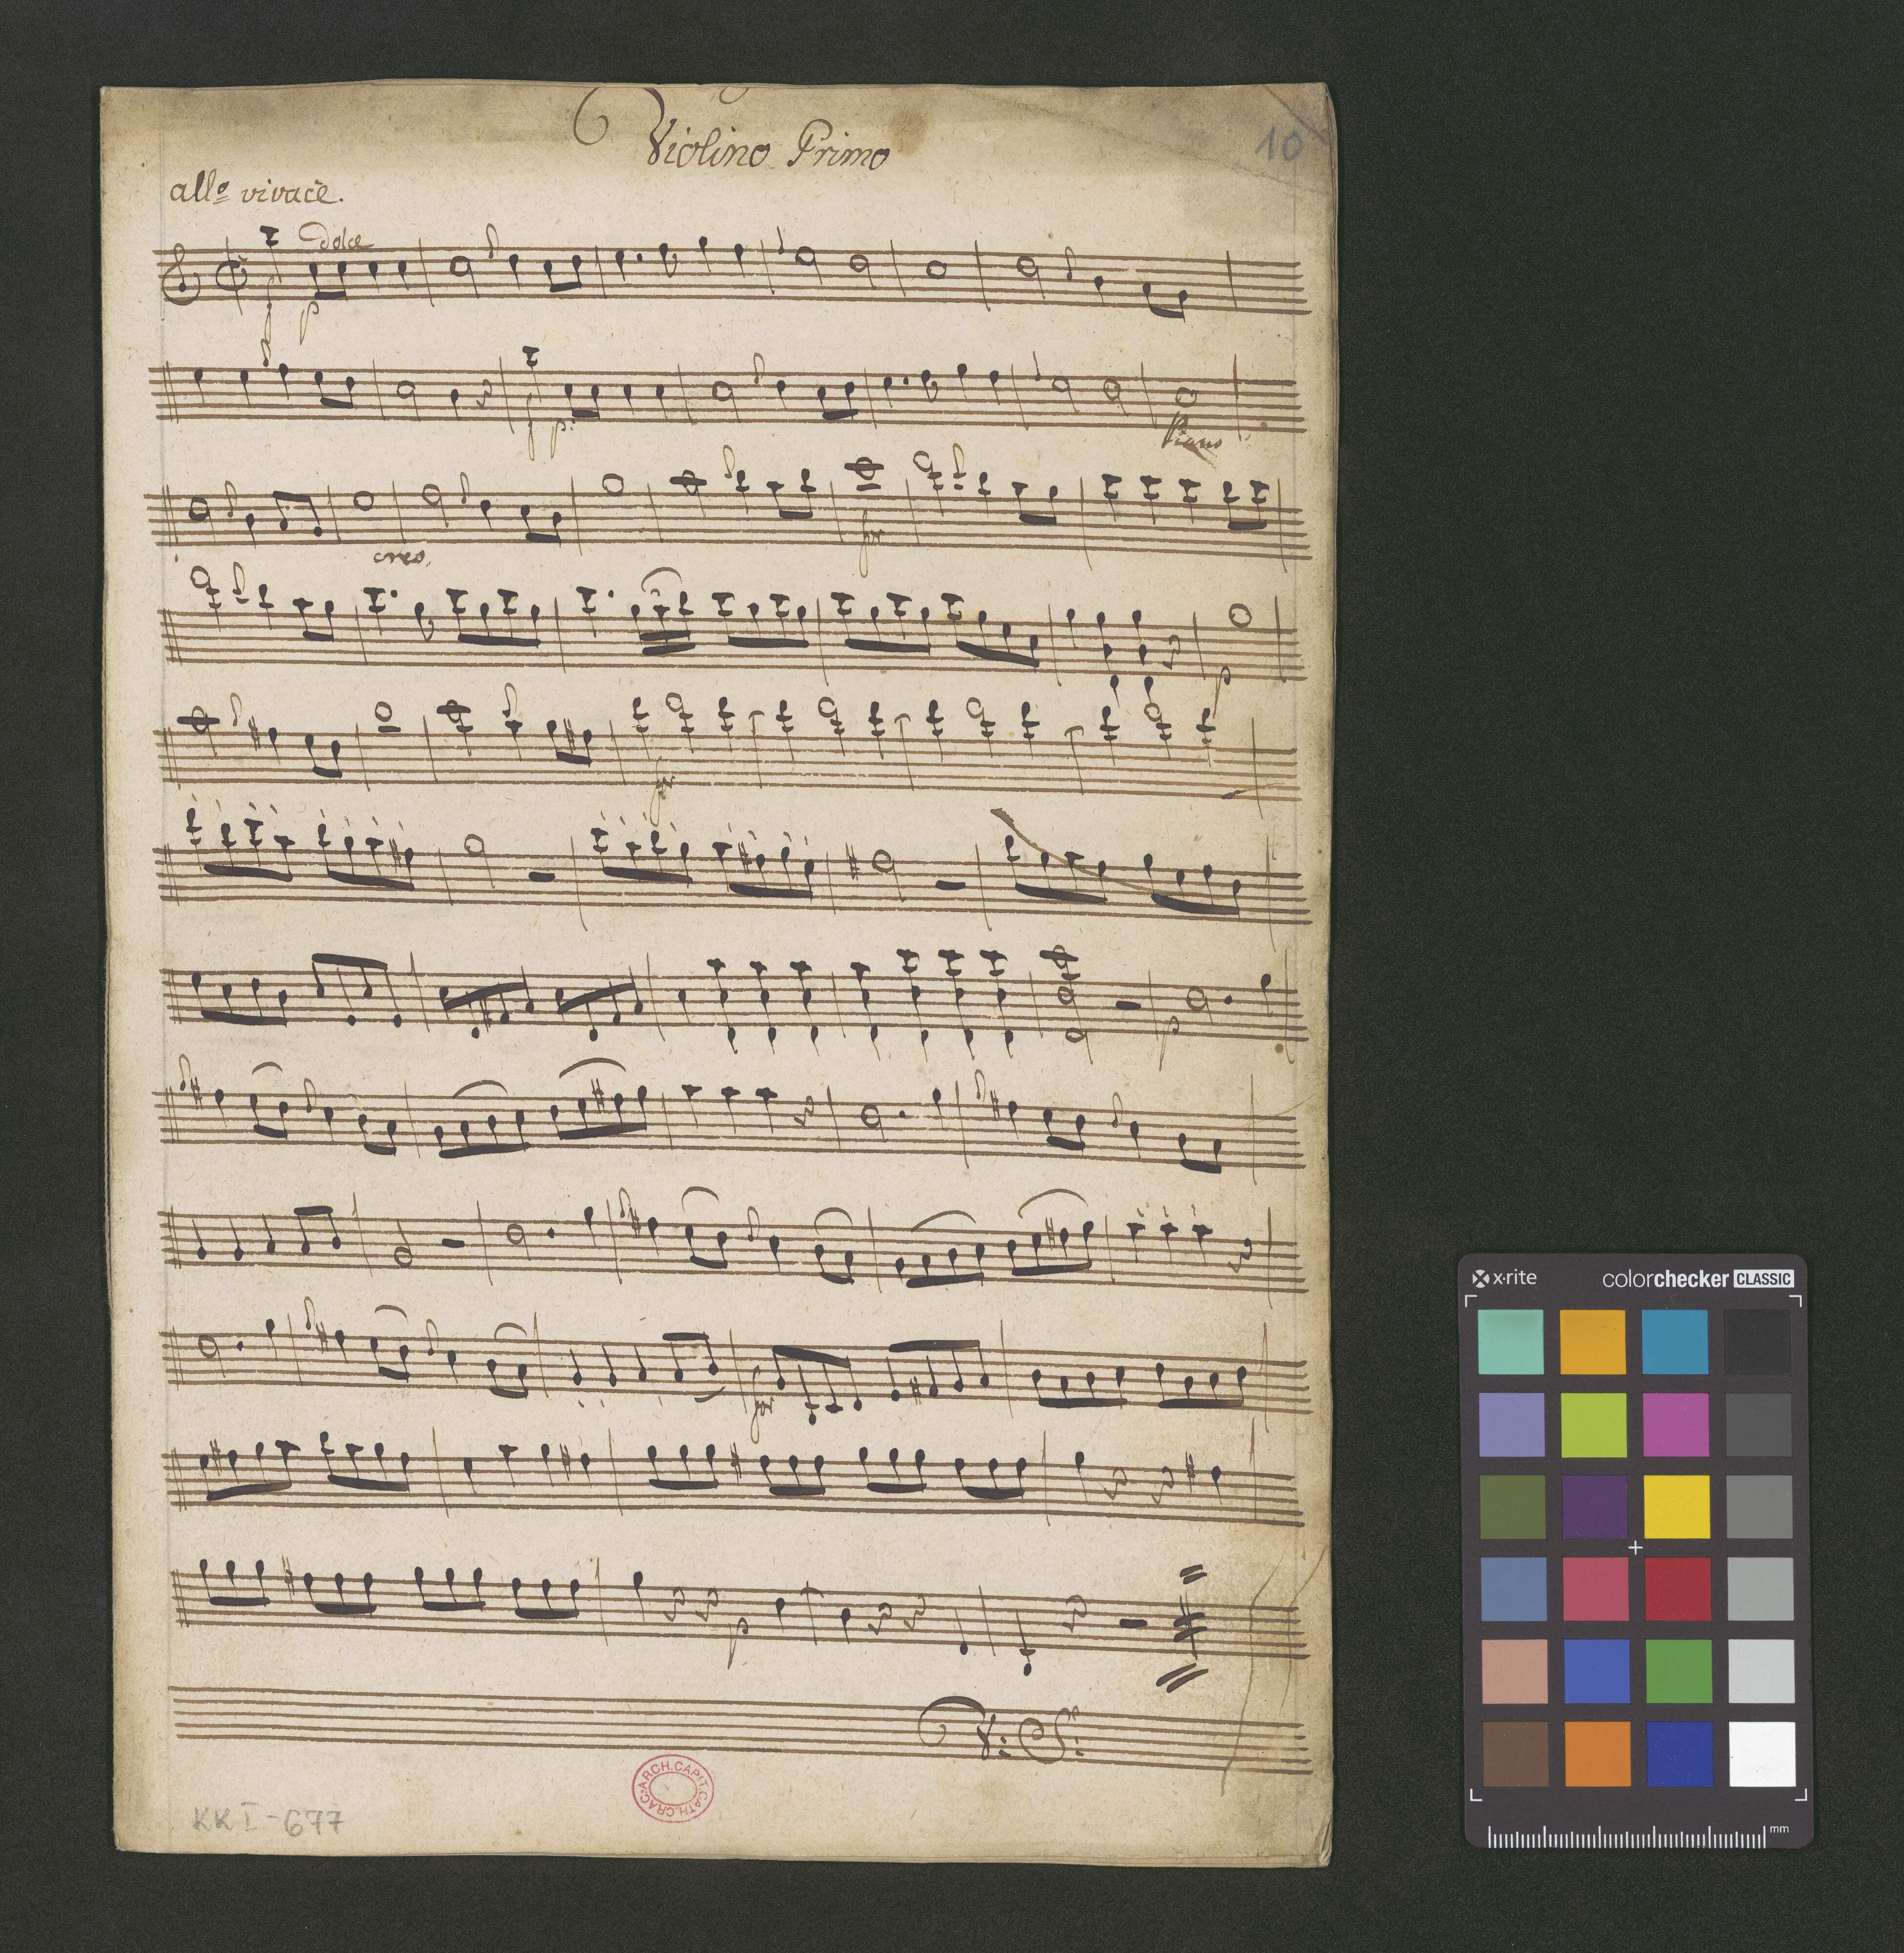 Violino Primo
10
all<sup>o</sup> vivacè.
Dolce
f p
f p:
Piano
cres.
for
p
for
p
for
p
V: S:
ARCH.CAPIT.CATH.CRAC.
KK I-677
x-rite colorchecker CLASSIC
mm